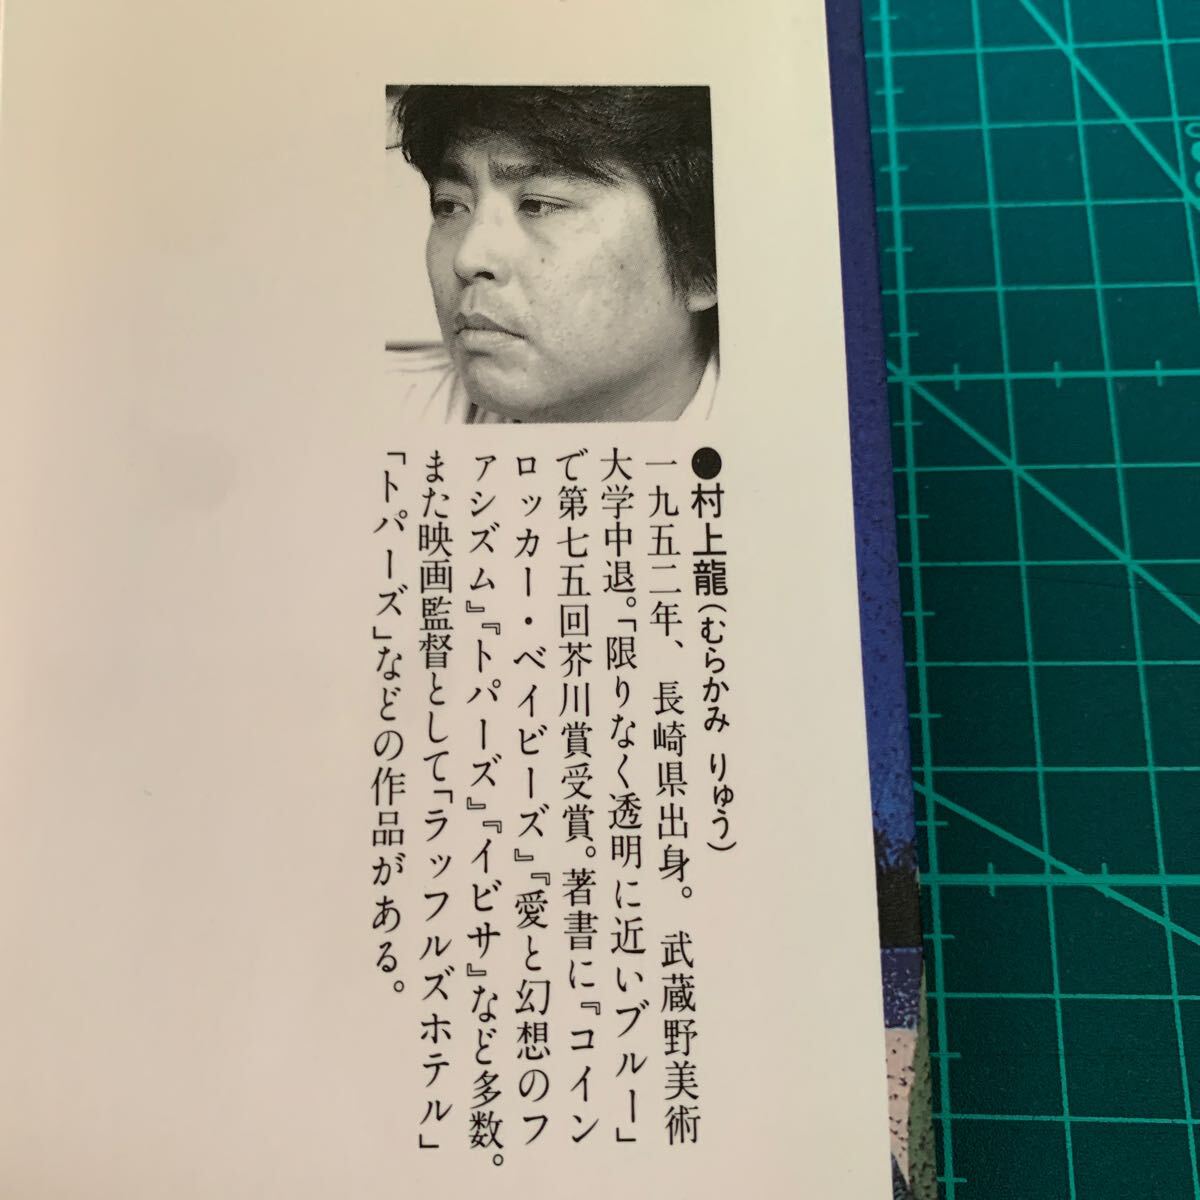 ●村上龍(むらかみ りゅう)
一九五二年、長崎県出身。武蔵野美術
大学中退。「限りなく透明に近いブルー」
で第七五回芥川賞受賞。著書に『コイン
ロッカー・ベイビーズ』『愛と幻想のフ
ァシズム』『トパーズ』『イビサ』など多数。
また映画監督として「ラッフルズホテル」
「トパーズ」などの作品がある。